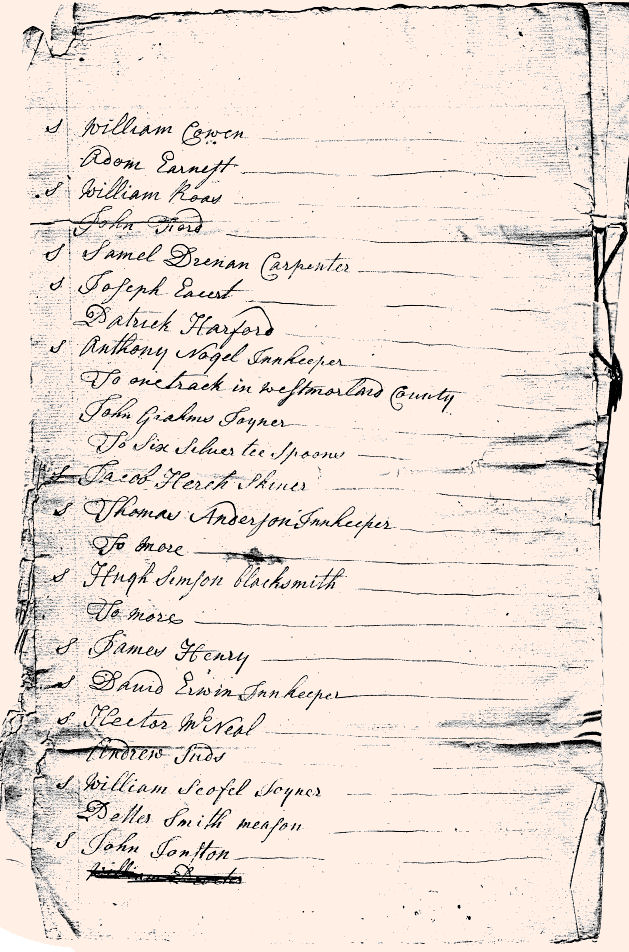 S William Cowen
Adom Earnest
S William Roas
John Ford
S Samel Drenan Carpenter
S Joseph Eaert
Patrick Harford
S Anthony Nogel Innkeeper
To one track in westmorland County
John Grahms Joyner
To Six Silver tee Spoons
S Jacob Hersh Skiner
S Thomas Anderson Innkeeper
To more
S Hugh Simson blacksmith
To more
S James Henry
S David Erwin Innkeeper
S Hector McNeal
Andrew Juds
S William Scofel Joyner
Detter Smith meason
S John Jonston
William